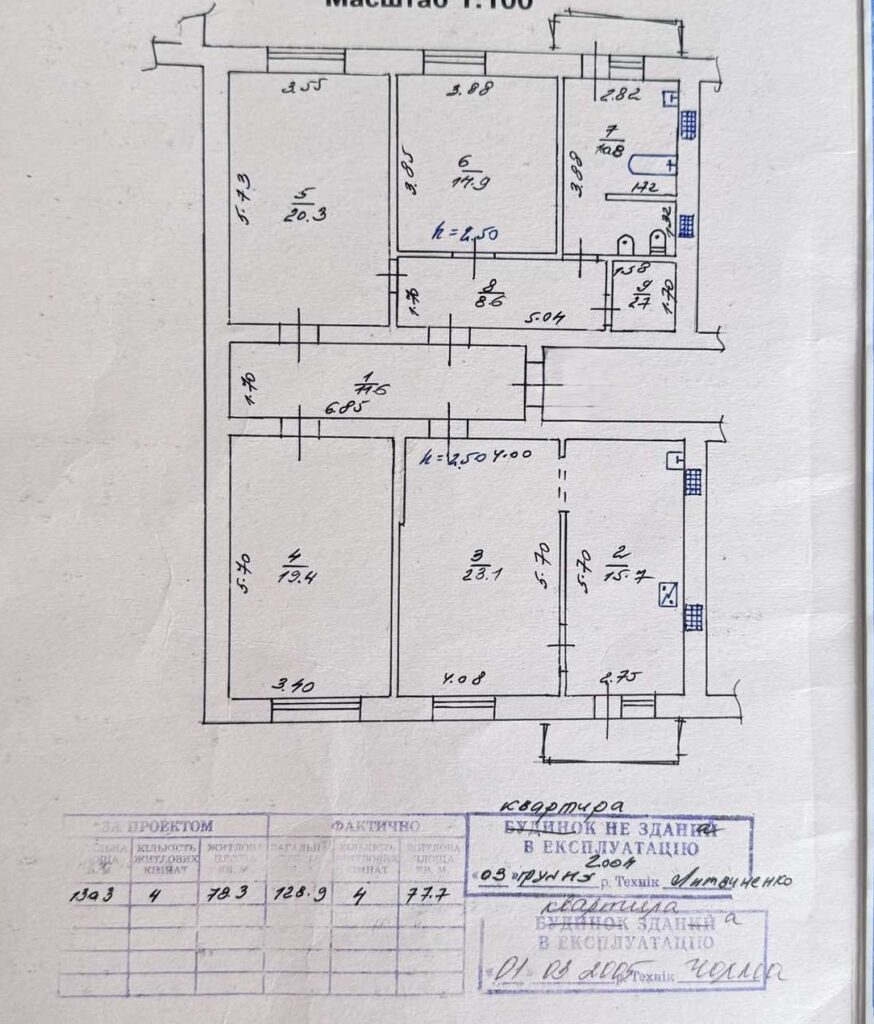 Масштаб 1:100
3.55
3.88
2.82
7
10.8
3.85
6
14.9
3.88
5.73
5
20.3
1.72
1.32
h=2.50
1.58
8
8.6
9
2.7
1.70
1.70
5.04
1
11.6
1.70
6.85
h=2.50 4.00
4
19.4
5.70
3
23.1
5.70
5.70
2
15.7
3.40
4.08
2.75
квартира
ЗА ПРОЕКТОМ ФАКТИЧНО
БУДИНОК НЕ ЗДАНИЙ а
В ЕКСПЛУАТАЦІЮ
КІЛЬКІСТЬ ЖИТЛОВИХ КІМНАТ
ЖИТЛОВА ПЛОЩА КВ. М
КІЛЬКІСТЬ ЖИТЛОВИХ КІМНАТ
ЖИТЛОВА ПЛОЩА КВ. М.
"03" грудня 2004 р. Технік Литвиненко
130.3 4 78.3 128.9 4 77.7
квартира
БУДИНОК ЗДАНИЙ а
В ЕКСПЛУАТАЦІЮ
"01 03 2005 р. Технік